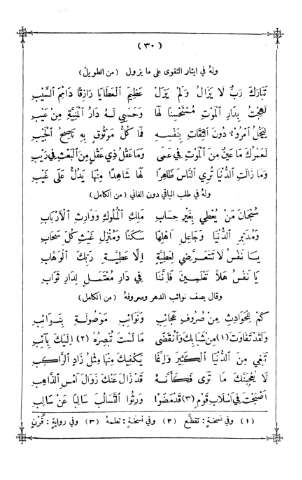 (٣٠)
وله في ايثار التقوى على ما يزول (من الطويل)
تبارك رب لا يزال ولم يزل عظيم العطايا رازقا دائم السيب
لهجت بدار الموت مستحسنا لها وحسبي له دار المنية من عيب
لعمرك ما عين من الموت في عمى وما عقل ذي عقل من البعث في ريب
وما زالت الدنيا تري الناس ظاهرا لها شاهدا منها يدل على غيب
وله في طلب الباقي دون الفاني (من الكامل)
سبحان من يعطي بغير حساب ملك الملوك ووارث الارباب
ومدبر الدنيا وجاعل ليلها سكنا ومنزل غيث كل سحاب
يا نفس لا تتعرضي لعطية الا عطية ربك الوهاب
يا نفس هلا تعملين فاننا في دار معتمل لدار ثواب
وقال يصف نوائب الدهر وصروفه (من الكامل)
كم للحوادث من صروف عجائب ونوائب موصولة بنوائب
ولقد تفاوت (١) من شبابك وانقضى ما لست تبصره (٢) اليك بآيب
تبغي من الدنيا الكثير وانما يكفيك منها مثل زاد الراكب
لا يعجبنك ما ترى فكأنه قد زال عنك زوال امس الذاهب
اصبحت في اسلاب قوم (٣) قد مضوا ورثوا التسالب سالبا عن سالب
(١) وفي نسخة: تقطع (٢) وفي نسخة: تعلمه (٣) وفي رواية: قرن